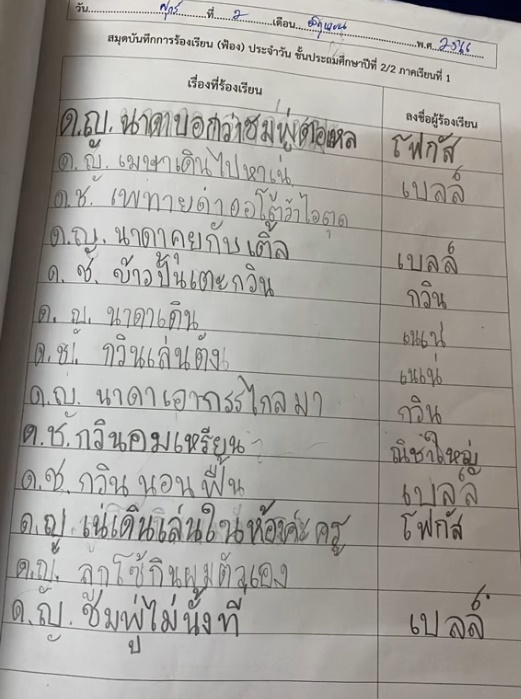 วัน ศุกร์ ที่ 2 เดือน มิถุนายน พ.ศ. 2566
สมุดบันทึกการร้องเรียน (ฟ้อง) ประจำวัน ชั้นประถมศึกษาปีที่ 2/2 ภาคเรียนที่ 1
เรื่องที่ร้องเรียน ลงชื่อผู้ร้องเรียน
ด.ญ. นาดาบอกว่าชมพู่ตอแหล โฟกัส
ด.ญ. เมษาเดินไปหาเน่ เบลล์
ด.ช. เพทายด่าออโต้ว่าไอตุด
ด.ญ. นาดาคุยกับเติ้ล เบลล์
ด.ช. ข้าวปั้นเตะกวิน กวิน
ด.ญ. นาดาเดิน เนเน่
ด.ช. กวินเล่นตัง เนเน่
ด.ญ. นาดาเอากรรไกลมา กวิน
ด.ช. กวินอมเหรียน ณิชาใหญ่
ด.ช. กวินนอนฟื้น เบลล์
ด.ญ. เน่เดินเล่นในห้องค่ะครู โฟกัส
ด.ญ. ลูกโซ้กินผมตัวเอง
ด.ญ. ชมพู่ไม่นั่งที เบลล์